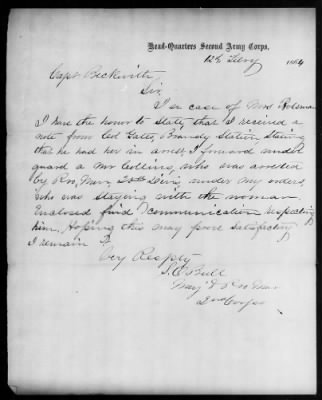 Head-Quarters Second Army Corps,
12th Feby 1864
Capt Beckwith
Sir
In case of Mrs
I have the honor to state, that I received a
note from Col Gates, Brandy Station, stating
that he had her in arrest, I forward under
guard a Mr Collins, who was arrested
by Pro, Mar, 2d Divis under my orders,
who was staying with the woman
Enclosed find communication respecting
him. Hoping this may prove satisfactory
I remain
Very Respty
S. C. Bull
Maj & Pro Mar
2nd Corps